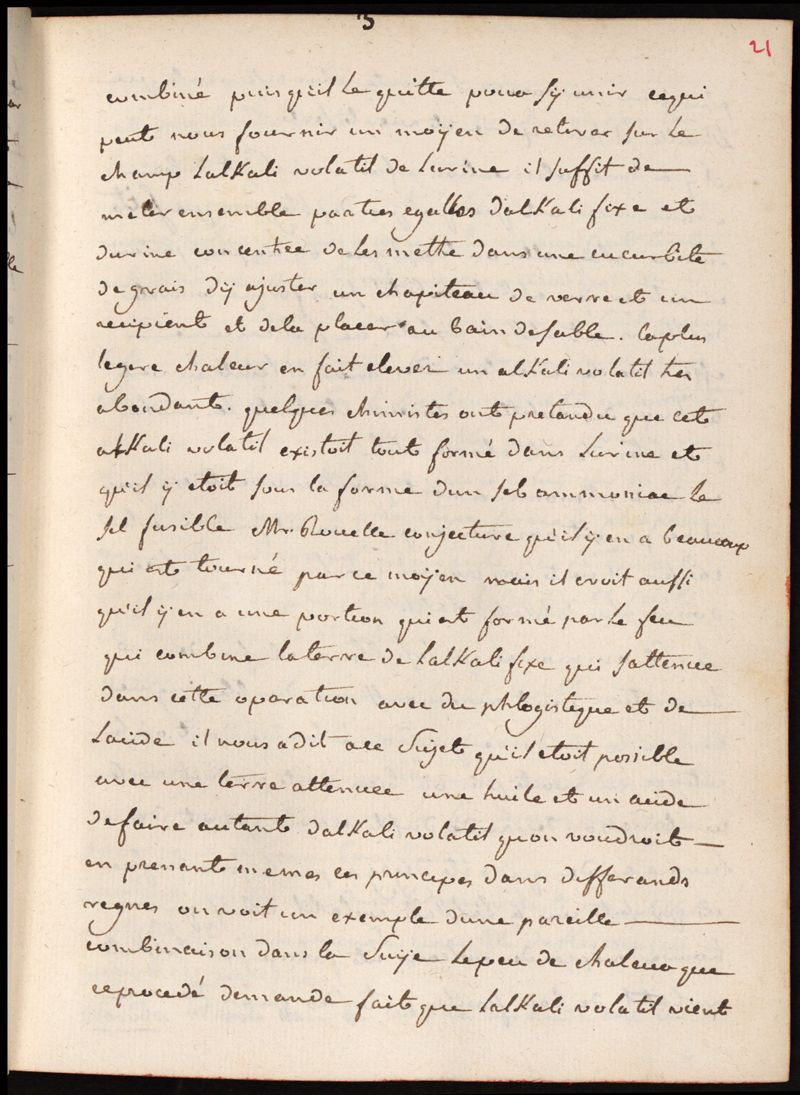 3
21
combiné puisqu'il le quitte pour s'y unir cequi
peut nous fournir un moÿen de retirer sur le
champ lalkali volatil de lurine il suffit de
meler ensemble parties egalles dalkali fixe et
durine concentrée de les mettre dans une cucurbite
de grais d'ÿ ajuster un chapiteau de verre et un
recipient et dela placer au bain de sable. la plus
legere chaleur en fait elever un alkali volatil tres
abondant. quelques chimistes ont pretandu que cet
alkali volatil existoit tout formé dans lurine et
qu'il ÿ etoit sous la forme d'un sel ammoniac le
sel fusible Mr. Rouelle conjecture qu'il ÿ en a beaucoup
qui est tourné par ce moÿen mais il croit aussi
qu'il ÿ en a une portion qui est formé par le feu
qui combine la terre de lalkali fixe qui sattenue
dans cette oparation avec du phlogistique et de
lacide il nous a dit a ce sujet qu'il etoit possible
avec une terre attenuée une huile et un acide
de faire autant dalkali volatil quon voudroit
en prenant memes ces principes dans differands
regnes on voit un exemple dune pareille
combinaison dans la suije le peu de chaleur que
ce procedé demande fait que lalkali volatil vient